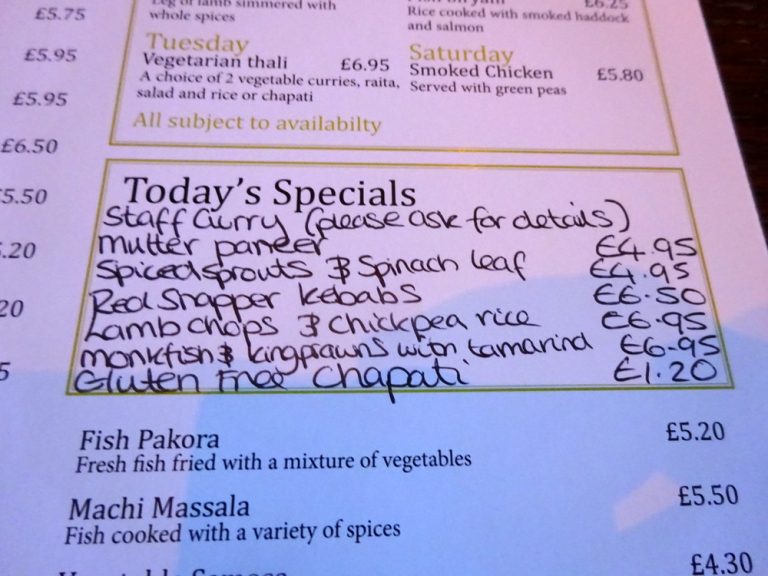 £5.75
£5.95
£5.95
£6.50
5.50
.20
20
5
Leg of lamb simmered with
whole spices
Tuesday
Vegetarian thali £6.95
A choice of 2 vegetable curries, raita,
salad and rice or chapati
All subject to availabilty
£6.25
Rice cooked with smoked haddock
and salmon
Saturday
Smoked Chicken £5.80
Served with green peas
Today's Specials
Staff Curry (please ask for details)
Mutter paneer £4.95
Spiced sprouts & Spinach leaf £4.95
Red Snapper kebabs £6.50
Lamb chops & chickpea rice £6.95
monkfish & kingprawns with tamarind £6.95
Gluten Free Chapati £1.20
Fish Pakora £5.20
Fresh fish fried with a mixture of vegetables
Machi Massala £5.50
Fish cooked with a variety of spices
£4.30